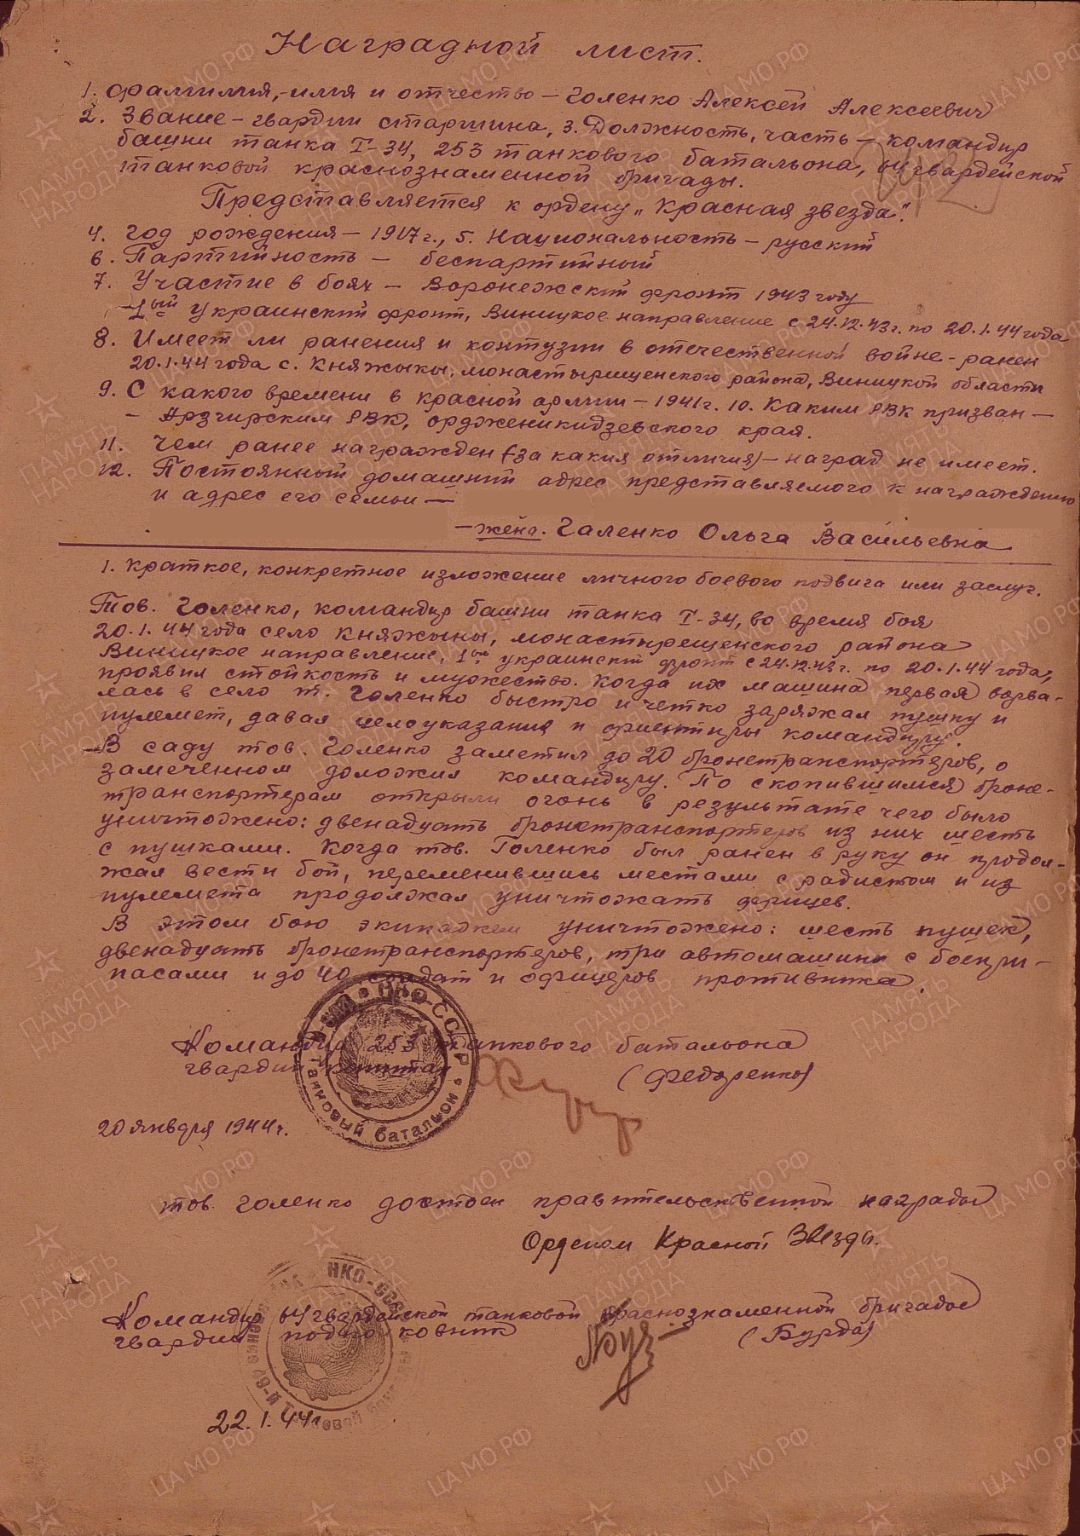 Наградной лист.
1. Фамилия, имя и отчество – Голенко Алексей Алексеевич
2. Звание – гвардии старшина, 3. Должность, часть – командир
башни танка Т-34, 253 танкового батальона, 64 гвардейской
танковой краснознаменной бригады.
Представляется к ордену „Красная звезда".
4. Год рождения – 1917 г., 5. Национальность – русский
6. Партийность – беспартийный
7. Участие в боях – Воронежский фронт 1943 году
– 1ый Украинский фронт, Виницкое направление с 24.12.43 г. по 20.1.44 года
8. Имеет ли ранения и контузии в отечественной войне – ранен
20.1.44 года с. Княжыки, монастырищенского района, Виницкой области
9. С какого времени в красной армии – 1941 г. 10. Каким РВК призван –
– Арзгирским РВК, орджоникидзевского края.
11. Чем ранее награжден (за какия отличия) – наград не имеет.
12. Постоянный домашний адрес представляемого к награждению
и адрес его семьи –
– жена. Галенко Ольга Васильевна
1. Краткое, конкретное изложение личного боевого подвига или заслуг.
Тов. Голенко, командир башни танка Т-34, во время боя
20.1.44 года село Княжыки, монастырещенского района
Виницкое направление, 1ый украинский фронт с 24.12.43 г. по 20.1.44 года,
проявил стойкость и мужество. Когда их машина первая ворва-
лась в село т. Голенко быстро и четко заряжал пушку и
пулемет, давая целоуказания и ориентиры командиру.
– В саду тов. Голенко заметил до 20 бронетранспортеров, о
замеченном доложил командиру. По скопившимся броне-
транспортерам открыли огонь в результате чего было
уничтожено: двенадцать бронетранспортеров из них шесть
с пушками. Когда тов. Голенко был ранен в руку он продол-
жал вести бой, переменившись местами с радистом и из
пулемета продолжал уничтожать фрицев.
В этом бою экипажем уничтожено: шесть пушек,
двенадцать бронетранспортеров, три автомашины с боепри-
пасами и до 40 солдат и офицеров противника.
Командир 253 танкового батальона
гвардии капитан (Федоренко)
НКО-СССР
Танковый батальон
20 января 1944 г.
тов. Голенко достоен правительственной награды
Орденом Красной Звезды.
НКО-СССР
Командир 64 гвардейской танковой краснознаменной бригадой
гвардии подполковник (Бурда)
22.1.44 г
ЦА МО РФ
ПАМЯТЬ НАРОДА